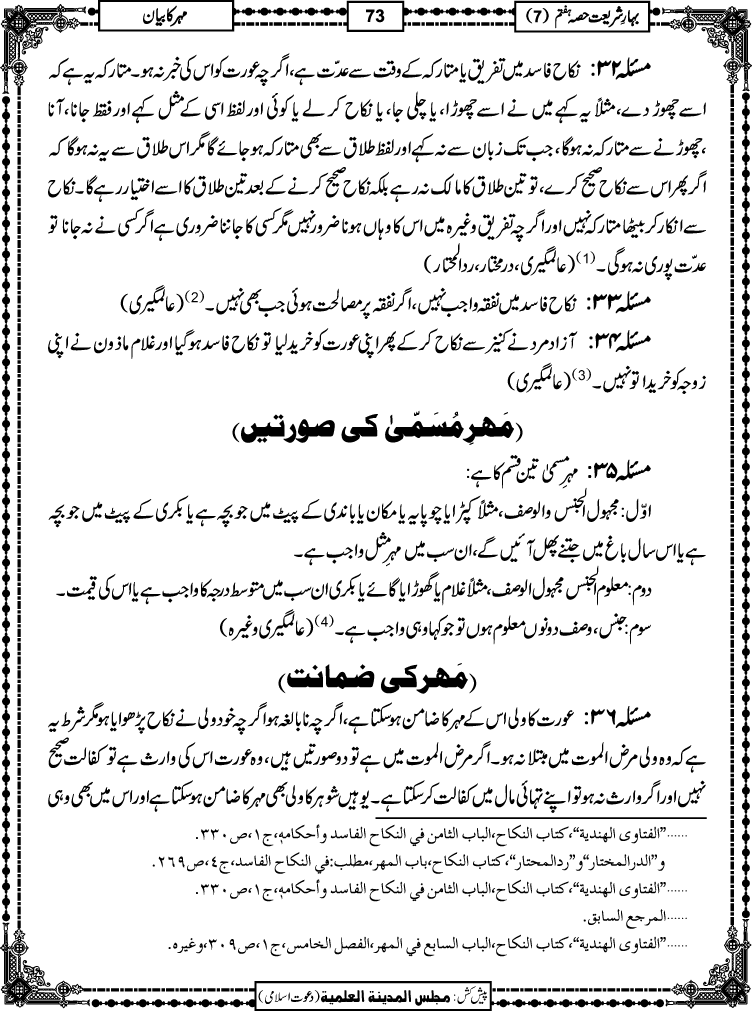 بہارِ شریعت حصہ ہفتم (7)
73
مہر کا بیان
مسئلہ ۳۲: نکاح فاسد میں تفریق یا متارکہ کے وقت سے عدّت ہے، اگرچہ عورت کو اس کی خبر نہ ہو۔ متارکہ یہ ہے کہ
اسے چھوڑ دے، مثلاً یہ کہے میں نے اسے چھوڑا، یا چلی جا، یا نکاح کر لے یا کوئی اور لفظ اسی کے مثل کہے اور فقط جانا، آنا
،چھوڑنے سے متارکہ نہ ہوگا، جب تک زبان سے نہ کہے اور لفظ طلاق سے بھی متارکہ ہو جائے گا مگر اس طلاق سے یہ نہ ہوگا کہ
اگر پھر اس سے نکاح صحیح کرے، تو تین طلاق کا مالک نہ رہے بلکہ نکاح صحیح کرنے کے بعد تین طلاق کا اسے اختیار رہے گا۔ نکاح
سے انکار کر بیٹھا متارکہ نہیں اور اگرچہ تفریق وغیرہ میں اس کا وہاں ہونا ضرور نہیں مگر کسی کا جاننا ضروری ہے اگر کسی نے نہ جانا تو
عدّت پوری نہ ہوگی۔ (1) (عالمگیری، درمختار، ردالمحتار)
مسئلہ ۳۳: نکاح فاسد میں نفقہ واجب نہیں، اگر نفقہ پر مصالحت ہوئی جب بھی نہیں۔ (2) (عالمگیری)
مسئلہ ۳۴: آزاد مرد نے کنیز سے نکاح کر کے پھر اپنی عورت کو خرید لیا تو نکاح فاسد ہوگیا اور غلام ماذون نے اپنی
زوجہ کو خریدا تو نہیں۔ (3) (عالمگیری)
(مَہرِ مُسَمّیٰ کی صورتیں)
مسئلہ ۳۵: مہرِ مسمیٰ تین قسم کا ہے:
اوّل: مجہول الجنس والوصف، مثلاً کپڑا یا چوپایہ یا مکان یا باندی کے پیٹ میں جو بچہ ہے یا بکری کے پیٹ میں جو بچہ
ہے یا اس سال باغ میں جتنے پھل آئیں گے، ان سب میں مہرِ مثل واجب ہے۔
دوم: معلوم الجنس مجہول الوصف، مثلاً غلام یا گھوڑا یا گائے یا بکری ان سب میں متوسط درجہ کا واجب ہے یا اس کی قیمت۔
سوم: جنس، وصف دونوں معلوم ہوں تو جو کہا وہی واجب ہے۔ (4) (عالمگیری وغیرہ)
(مَہر کی ضمانت)
مسئلہ ۳۶: عورت کا ولی اس کے مہر کا ضامن ہو سکتا ہے، اگرچہ نابالغہ ہو اگرچہ خود ولی نے نکاح پڑھوایا ہو مگر شرط یہ
ہے کہ وہ ولی مرض الموت میں مبتلا نہ ہو۔ اگر مرض الموت میں ہے تو دو صورتیں ہیں، وہ عورت اس کی وارث ہے تو کفالت صحیح
نہیں اور اگر وارث نہ ہو تو اپنے تہائی مال میں کفالت کر سکتا ہے۔ یوہیں شوہر کا ولی بھی مہر کا ضامن ہو سکتا ہے اور اس میں بھی وہی
......"الفتاوی الھندیة"، کتاب النکاح، الباب الثامن في النکاح الفاسد وأحکامہ، ج۱، ص۳۳۰.
و"الدرالمختار" و"ردالمحتار"، کتاب النکاح، باب المھر، مطلب: في النکاح الفاسد، ج٤، ص۲٦۹.
......"الفتاوی الھندیة"، کتاب النکاح، الباب الثامن في النکاح الفاسد وأحکامہ، ج۱، ص۳۳۰.
......المرجع السابق.
......"الفتاوی الھندیة"، کتاب النکاح، الباب السابع في المھر، الفصل الخامس، ج۱، ص۳۰۹، وغیرہ.
پیش کش: مجلس المدینة العلمیة (دعوت اسلامی)